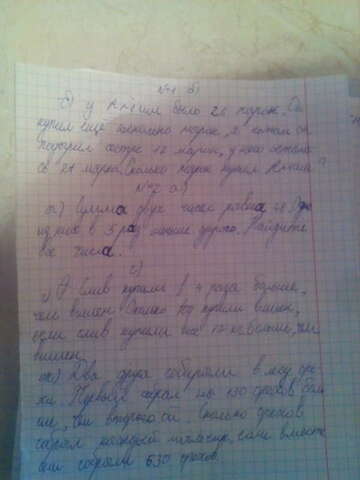 №1 б)
б) У было 26 марок. Он
купил ещё несколько марок, а потом он
подарил сестре 12 марок, у него
сь 21 марка. Сколько марок купил
№2 а)
Сумма двух чисел равна
из них в 5 раз меньше другого. Найдите
числа.
г)
Слив купили в 4 раза больше,
чем вишен. Сколько купили вишен,
если слив купили на больше, чем
вишен
Два друга собирали в лесу оре
хи. Первый собрал на 130 орехов боль
ше, чем второй. Сколько орехов
собрал каждый мальчик, если вместе
они собрали 630 орехов.